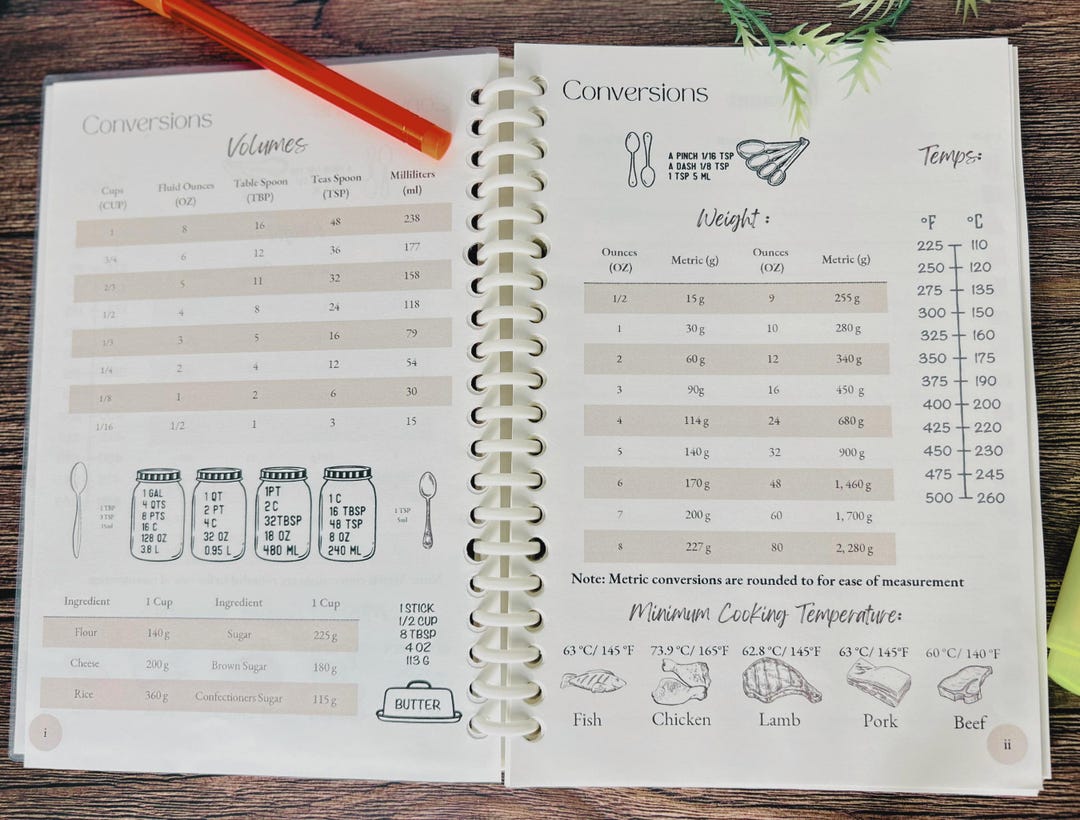 Conversions
Volumes
Cups (CUP) Fluid Ounces (OZ) Table Spoon (TBP) Teas Spoon (TSP) Milliliters (ml)
1 8 16 48 238
3/4 6 12 36 177
2/3 5 11 32 158
1/2 4 8 24 118
1/3 3 5 16 79
1/4 2 4 12 54
1/8 1 2 6 30
1/16 1/2 1 3 15
1 TBP
3 TSP
15ml
1 GAL
4 QTS
8 PTS
16 C
128 OZ
3.8 L
1 QT
2 PT
4 C
32 OZ
0.95 L
1PT
2 C
32TBSP
16 OZ
480 ML
1 C
16 TBSP
48 TSP
8 OZ
240 ML
1 TSP
5ml
Ingredient 1 Cup Ingredient 1 Cup
Flour 140 g Sugar 225 g
Cheese 200 g Brown Sugar 180 g
Rice 360 g Confectioners Sugar 115 g
1 STICK
1/2 CUP
8 TBSP
4 OZ
113 G
BUTTER
i
Conversions
A PINCH 1/16 TSP
A DASH 1/8 TSP
1 TSP 5 ML
Weight :
Ounces (OZ) Metric (g) Ounces (OZ) Metric (g)
1/2 15 g 9 255 g
1 30 g 10 280 g
2 60 g 12 340 g
3 90g 16 450 g
4 114 g 24 680 g
5 140 g 32 900 g
6 170 g 48 1, 460 g
7 200 g 60 1, 700 g
8 227 g 80 2, 280 g
Temps:
°F °C
225 110
250 120
275 135
300 150
325 160
350 175
375 190
400 200
425 220
450 230
475 245
500 260
Note: Metric conversions are rounded to for ease of measurement
Minimum Cooking Temperature:
63 °C/ 145 °F 73.9 °C/ 165°F 62.8 °C/ 145°F 63 °C/ 145 °F 60 °C/ 140 °F
Fish Chicken Lamb Pork Beef
ii